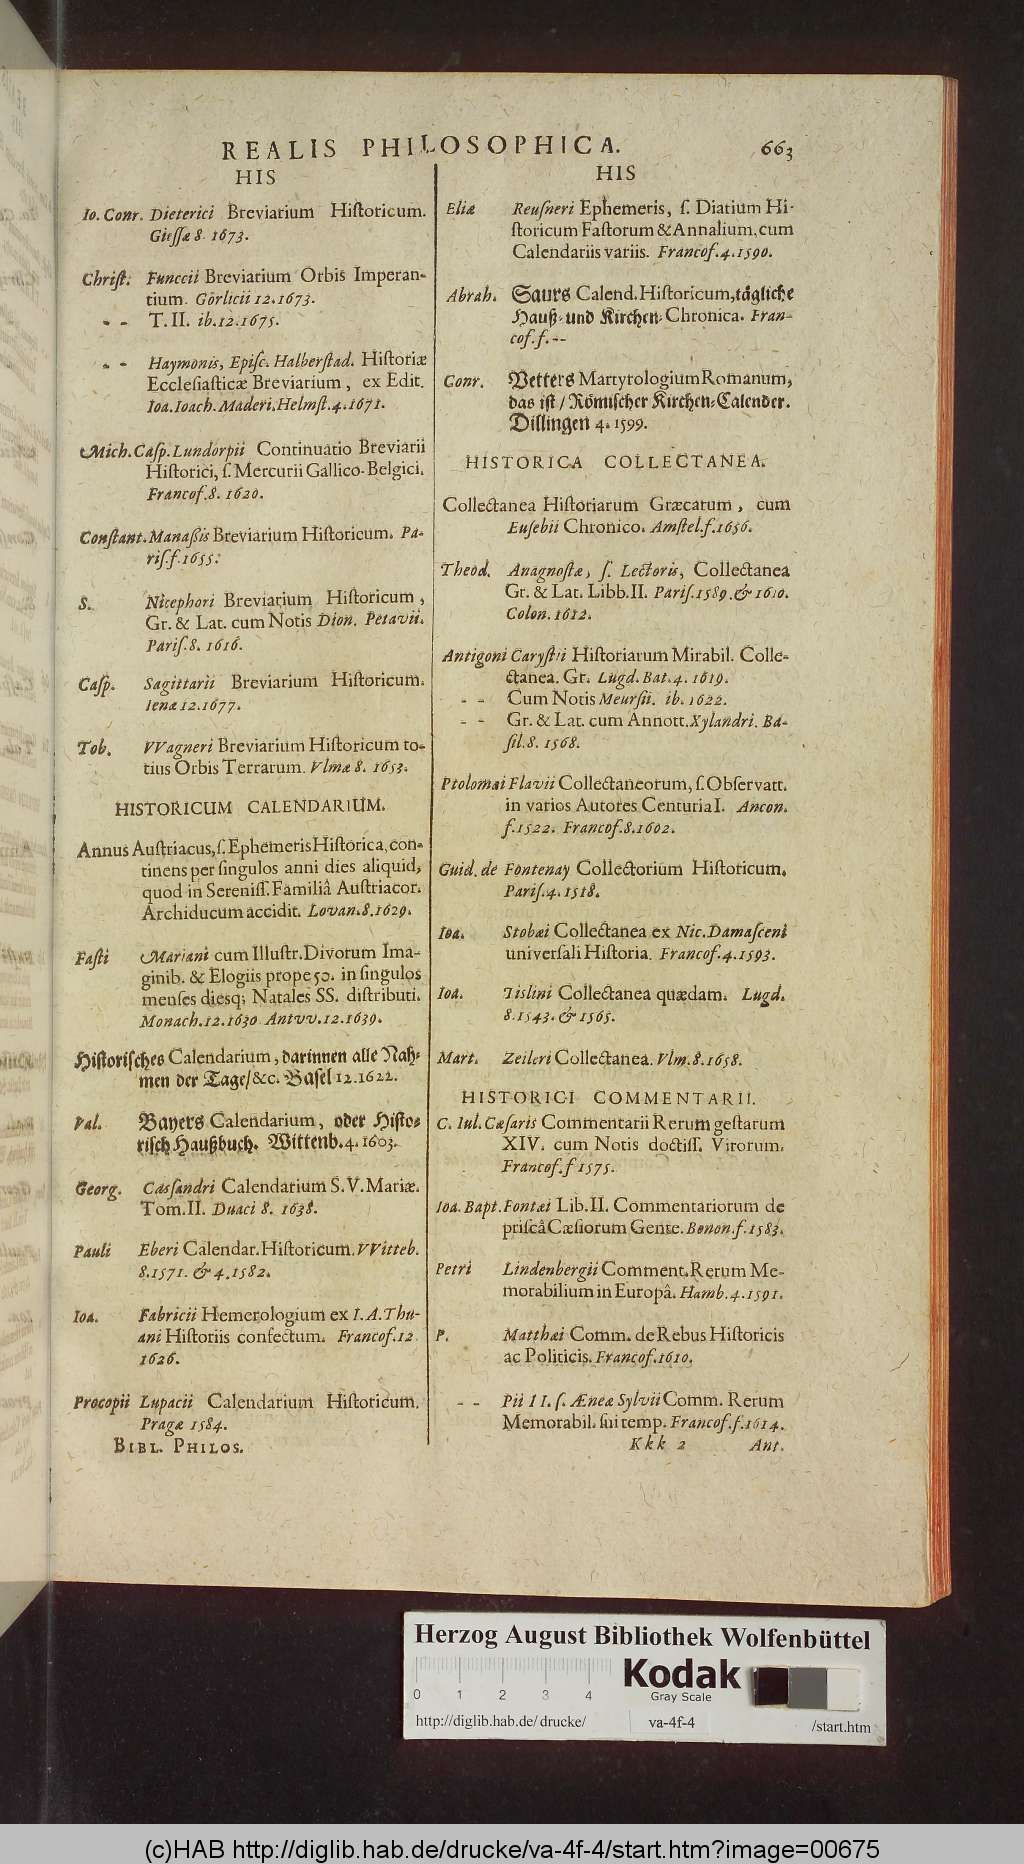 REALIS PHILOSOPHICA. 663
HIS
Io. Conr. Dieterici Breviarium Hiſtoricum.
Gieſſæ 8. 1673.
Chriſt. Funccii Breviarium Orbis Imperan-
tium. Görlicii 12. 1673.
- - T. II. ib. 12. 1675.
- - Haymonis, Epiſc. Halberſtad. Hiſtoriæ
Eccleſiaſticæ Breviarium, ex Edit.
Ioa. Ioach. Maderi, Helmſt. 4. 1671.
Mich. Caſp. Lundorpii Continuatio Breviarii
Hiſtorici, ſ. Mercurii Gallico-Belgici.
Francof. 8. 1620.
Conſtant. Manaßis Breviarium Hiſtoricum. Pa-
riſ. f. 1655.
S. Nicephori Breviarium Hiſtoricum,
Gr. & Lat. cum Notis Dion. Petavii.
Pariſ. 8. 1616.
Caſp. Sagittarii Breviarium Hiſtoricum.
Ienæ 12. 1677.
Tob. VVagneri Breviarium Hiſtoricum to-
tius Orbis Terrarum. Vlmæ 8. 1653.
HISTORICUM CALENDARIUM.
Annus Auſtriacus, ſ. Ephemeris Hiſtorica, con-
tinens per ſingulos anni dies aliquid,
quod in Sereniſſ. Familiâ Auſtriacor.
Archiducum accidit. Lovan. 8. 1629.
Faſti Mariani cum Illuſtr. Divorum Ima-
ginib. & Elogiis prope 50. in ſingulos
menſes diesq; Natales SS. diſtributi.
Monach. 12. 1630 Antvv. 12. 1639.
Hiſtoriſches Calendarium, darinnen alle Nah-
men der Tage/ &c. Baſel 12. 1622.
Val. Bayers Calendarium, oder Hiſto-
riſch Haußbuch. Wittenb. 4. 1603.
Georg. Caſſandri Calendarium S. V. Mariæ.
Tom. II. Duaci 8. 1638.
Pauli Eberi Calendar. Hiſtoricum. VVitteb.
8. 1571. & 4. 1582.
Ioa. Fabricii Hemerologium ex I. A. Thu-
ani Hiſtoriis confectum. Francof. 12
1626.
Procopii Lupacii Calendarium Hiſtoricum.
Pragæ 1584.
BIBL. PHILOS.
HIS
Eliæ Reuſneri Ephemeris, ſ. Diarium Hi-
ſtoricum Faſtorum & Annalium, cum
Calendariis variis. Francof. 4. 1590.
Abrah. Saurs Calend. Hiſtoricum, tägliche
Hauß- und Kirchen-Chronica. Fran-
cof. f. --
Conr. Vetters Martyrologium Romanum,
das iſt / Römiſcher Kirchen-Calender.
Dillingen 4. 1599.
HISTORICA COLLECTANEA.
Collectanea Hiſtoriarum Græcarum, cum
Euſebii Chronico. Amſtel. f. 1656.
Theod. Anagnoſtæ, ſ. Lectoris, Collectanea
Gr. & Lat. Libb. II. Pariſ. 1589. & 1610.
Colon. 1612.
Antigoni Caryſtii Hiſtoriarum Mirabil. Colle-
ctanea. Gr. Lugd. Bat. 4. 1619.
- - Cum Notis Meurſii. ib. 1622.
- - Gr. & Lat. cum Annott. Xylandri. Ba-
ſil. 8. 1568.
Ptolomæi Flavii Collectaneorum, ſ. Obſervatt.
in varios Autores Centuria I. Ancon.
f. 1522. Francof. 8. 1602.
Guid. de Fontenay Collectorium Hiſtoricum.
Pariſ. 4. 1518.
Ioa. Stobæi Collectanea ex Nic. Damaſceni
univerſali Hiſtoria. Francof. 4. 1593.
Ioa. Tislini Collectanea quædam. Lugd.
8. 1543. & 1565.
Mart. Zeileri Collectanea. Vlm. 8. 1658.
HISTORICI COMMENTARII.
C. Iul. Cæſaris Commentarii Rerum geſtarum
XIV. cum Notis doctiſſ. Virorum.
Francof. f 1575.
Ioa. Bapt. Fontæi Lib. II. Commentariorum de
priſcâ Cæſiorum Gente. Bonon. f. 1583.
Petri Lindenbergii Comment. Rerum Me-
morabilium in Europâ. Hamb. 4. 1591.
P. Matthæi Comm. de Rebus Hiſtoricis
ac Politicis. Francof. 1610.
- - Pii II. ſ. Æneæ Sylvii Comm. Rerum
Memorabil. ſui temp. Francof. f. 1614.
Kkk 2 Ant.
Herzog August Bibliothek Wolfenbüttel
Kodak
Gray Scale
0 1 2 3 4
http://diglib.hab.de/drucke/ va-4f-4 /start.htm
(c)HAB http://diglib.hab.de/drucke/va-4f-4/start.htm?image=00675